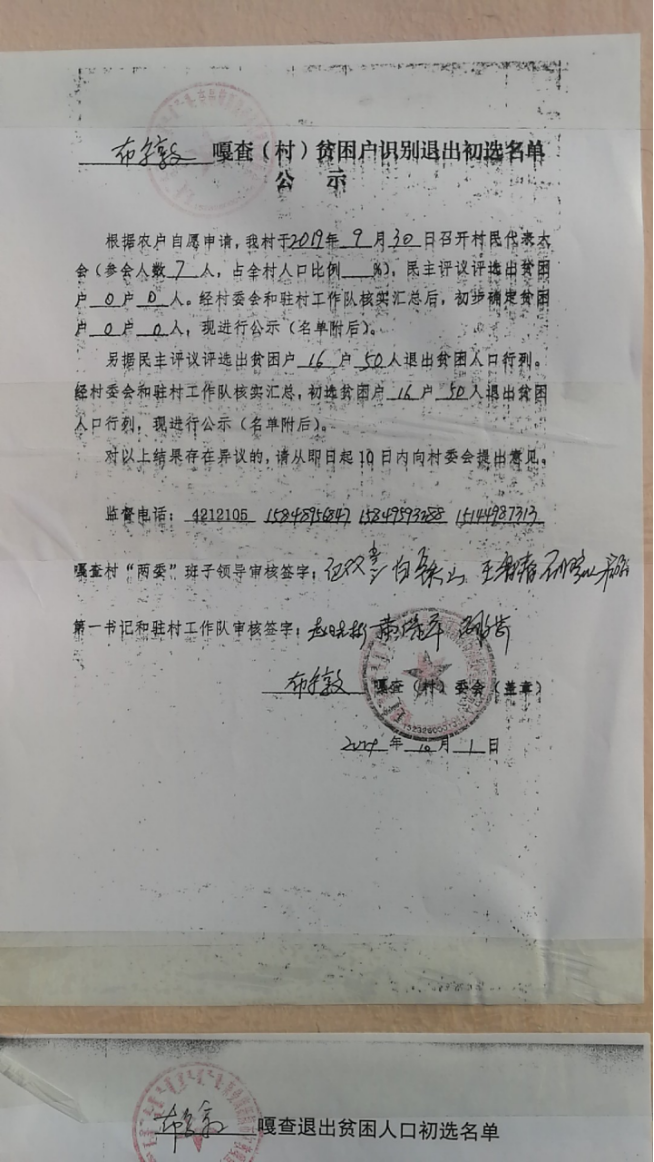 嘎查（村）贫困户识别退出初选名单
公 示
根据农户自愿申请，我村于2019年 9 月30 日召开村民代表大
会（参会人数 7 人，占全村人口比例___%），民主评议评选出贫困
户 0 户 0 人。经村委会和驻村工作队核实汇总后，初步确定贫困
户 0 户 0 人，现进行公示（名单附后）。
另据民主评议评选出贫困户 16 户 50 人退出贫困人口行列。
经村委会和驻村工作队核实汇总，初选贫困户 16 户 50 人退出贫困
人口行列，现进行公示（名单附后）。
对以上结果存在异议的，请从即日起 10 日内向村委会提出意见。
监督电话：4212105 15144987313
嘎查村“两委”班子领导审核签字：
第一书记和驻村工作队审核签字：
嘎查（村）委会（盖章）
2019 年 10 月 1 日
嘎查退出贫困人口初选名单